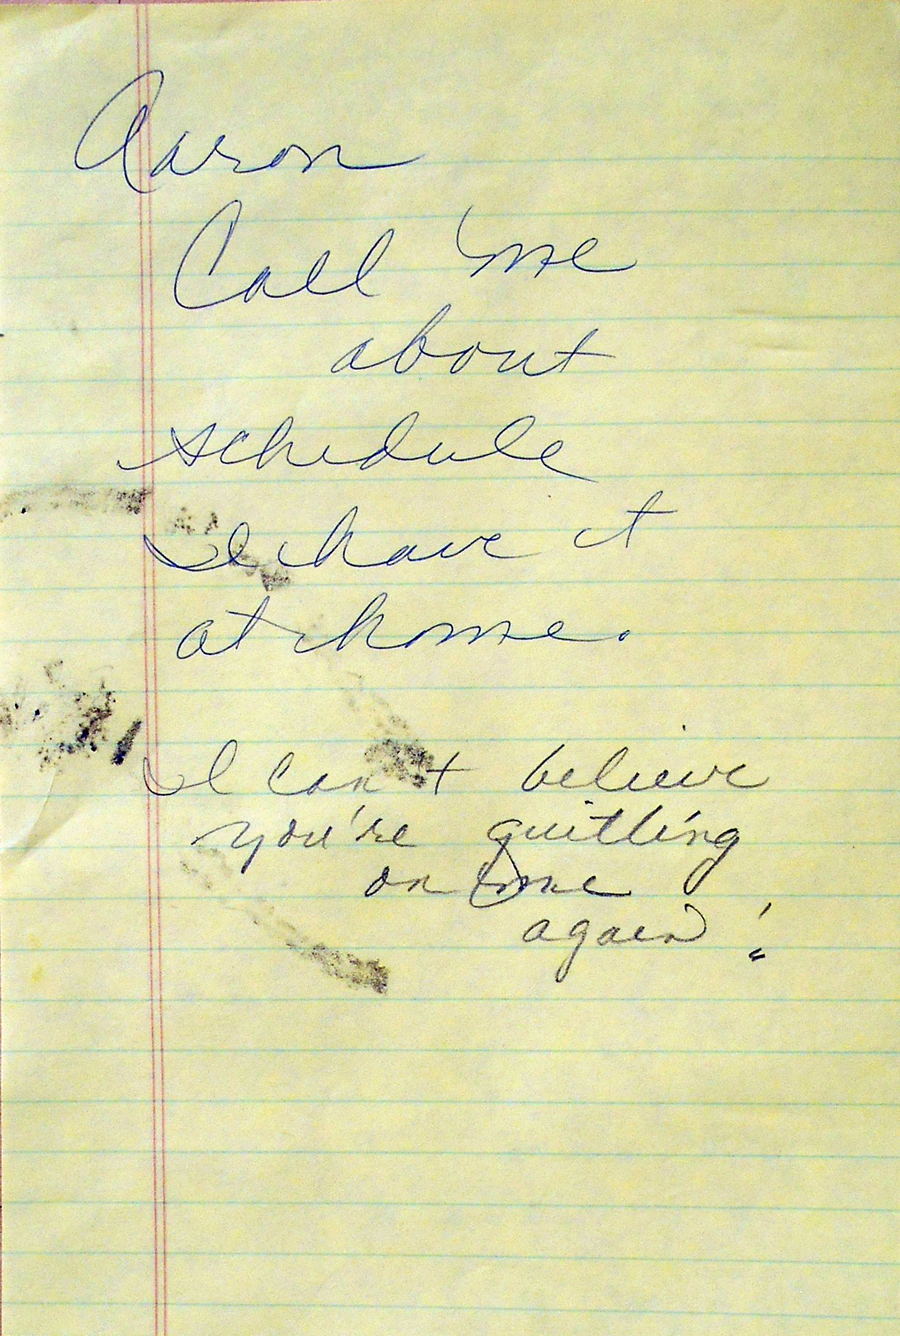 Aaron
Call me
about
schedule
I have it
at home.
I can't believe
you're quitting
on me
again!